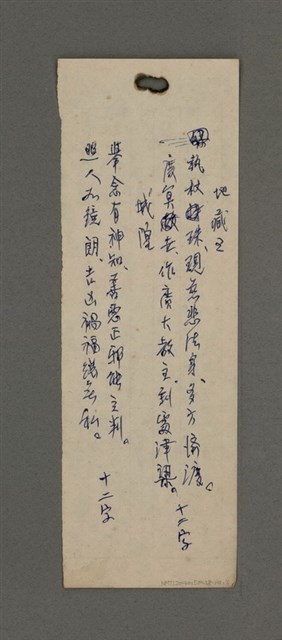 地藏王
執杖持珠、現慈悲法身、多方修渡。
度冥救苦、作廣大教主、到處津梁。 十二字
城隍
舉念有神知、善惡正邪能主判。
照人如鏡朗、吉凶禍福總無私。 十二字